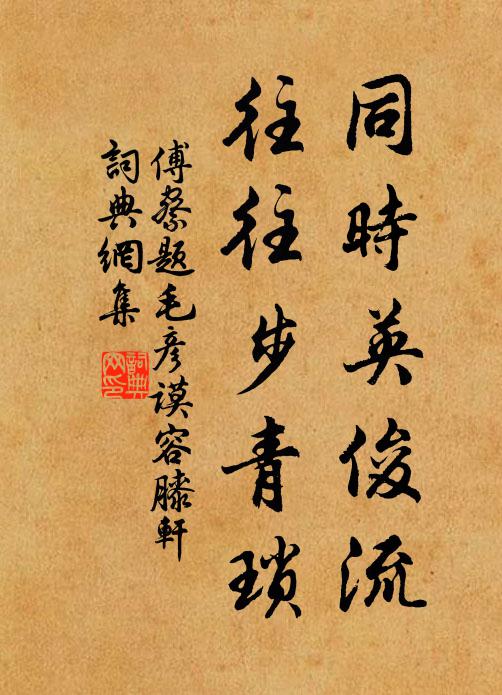 同時英俊流
往往步青瑣
傅察題毛彥謨容膝軒
詞典網集
詞典网印